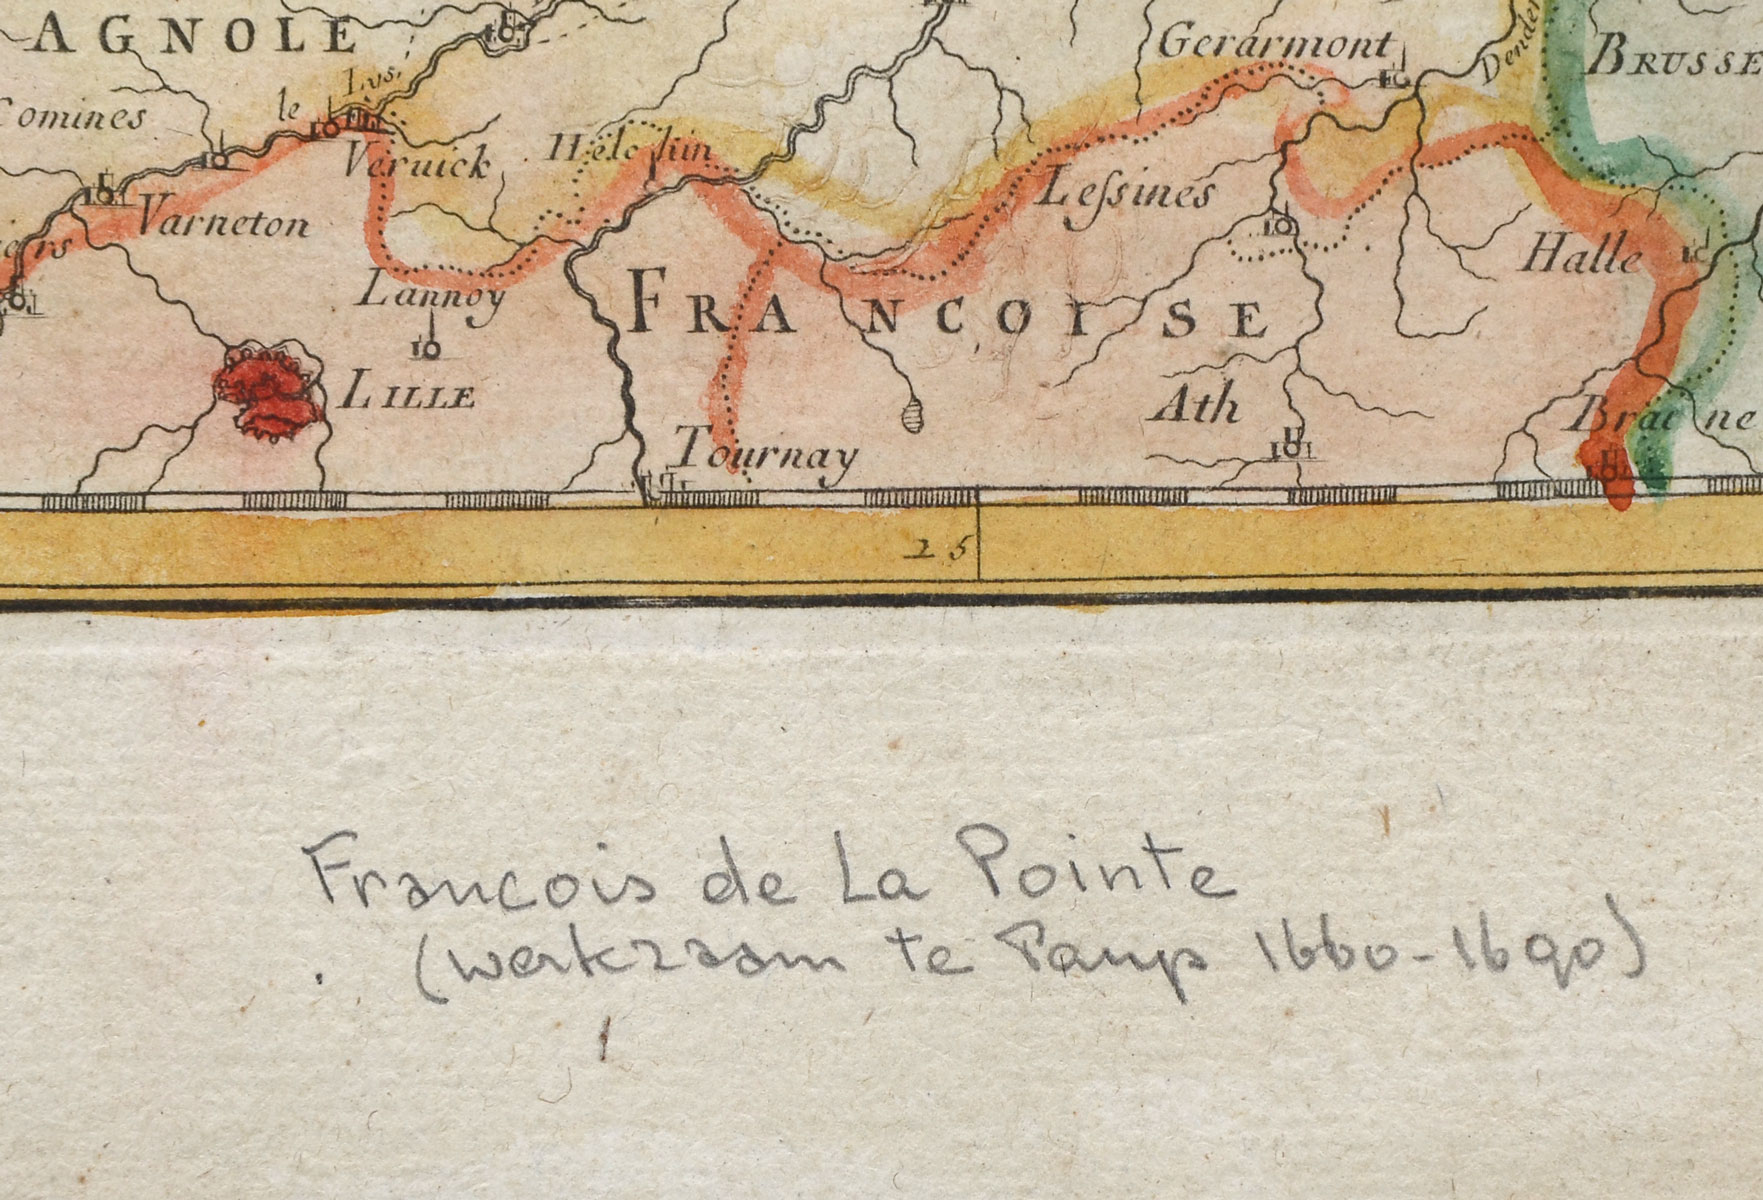 AGNOLE
Gerarmont
Dender
BRUSSE
Comines
le Lys
Helchin
Veruick
Varneton
iers
Leſsines
Halle
Lannoy
FRANCOISE
LILLE
Ath
Braine
Tournay
25
Francois de La Pointe
(werkzaam te Parijs 1660-1690)